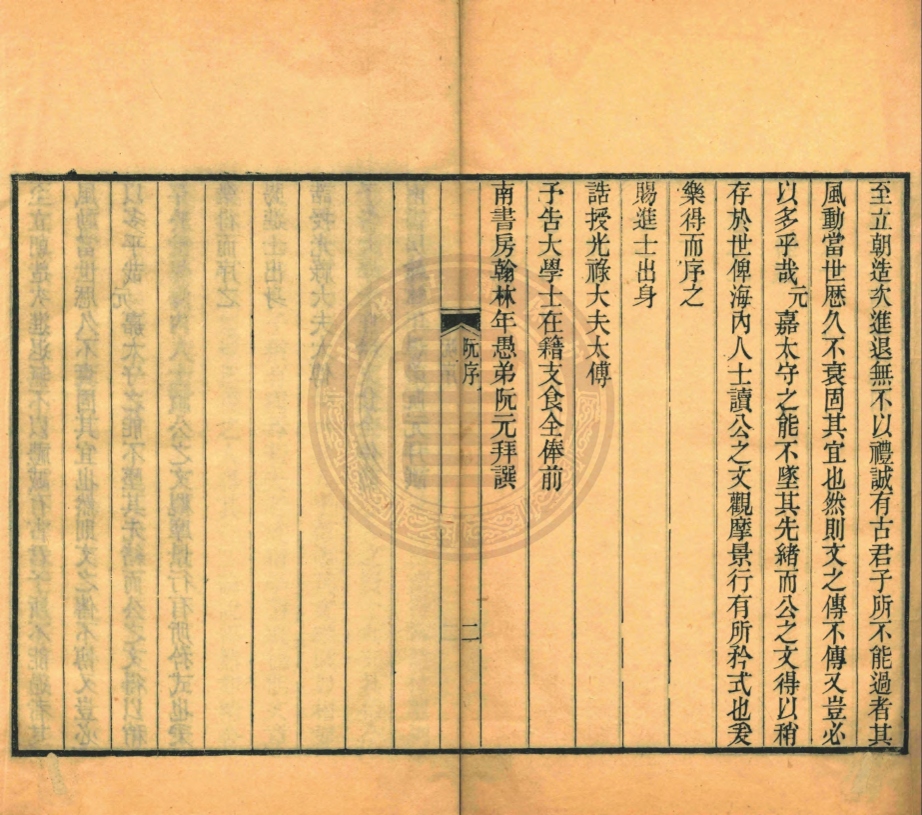 至立朝造次進退無不以禮誠有古君子所不能過者其
風動當世厯久不衰固其宜也然則文之傳不傳又豈必
以多乎哉元嘉太守之能不墜其先緒而公之文得以稍
存於世俾海內人士讀公之文觀摩景行有所矜式也爰
樂得而序之
賜進士出身
誥授光祿大夫太傅
予告大學士在籍支食全俸前
南書房翰林年愚弟阮元拜譔
阮序
二